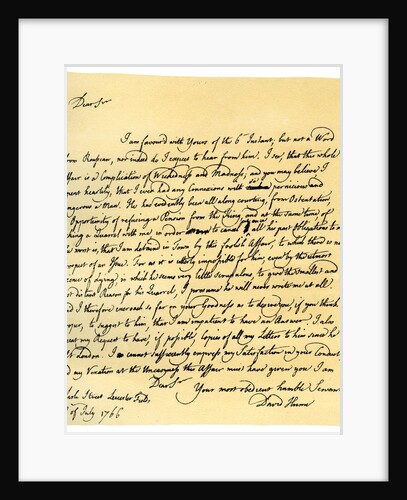 Dear Sir
I am favour'd with Yours of the 6th Instant, but not a Word
from Rousseau, nor indeed do I expect to hear from him. I see, that this whole
Affair is a Complication of Wickedness and Madness; and you may believe I
repent heartily, that I ever had any Connexions with so pernicious and
dangerous a Man. He has evidently been all along courting, from Ostentation,
an Opportunity of refusing a Pension from the King, and at the same time, of
picking a Quarrel with me, in order to cancel at once all his past Obligations to me
The worst is, that I am detain'd in Town by this foolish Affair, to which there is no
prospect of an Issue: For as it is utterly impossible for him, even by the utmost
Licence of Lying, in which he seems very little scrupulous, to give the smallest and
most distant Reason for his Quarrel, I presume he will never write me at all.
and I therefore encroach so far on your Goodness as to desire you, if you think
proper, to suggest to him, that I am impatient to have an Answer. I also
repeat my Request to have, if possible, Copies of all my Letters to him since he
left London. I cannot sufficiently express my Satisfaction in your Conduct
and my Vexation at the Uneasyness this Affair must have given you I am
Dear Sir
Your most obedient humble Servant
Street Leicester Fields
David Hume
of July 1766